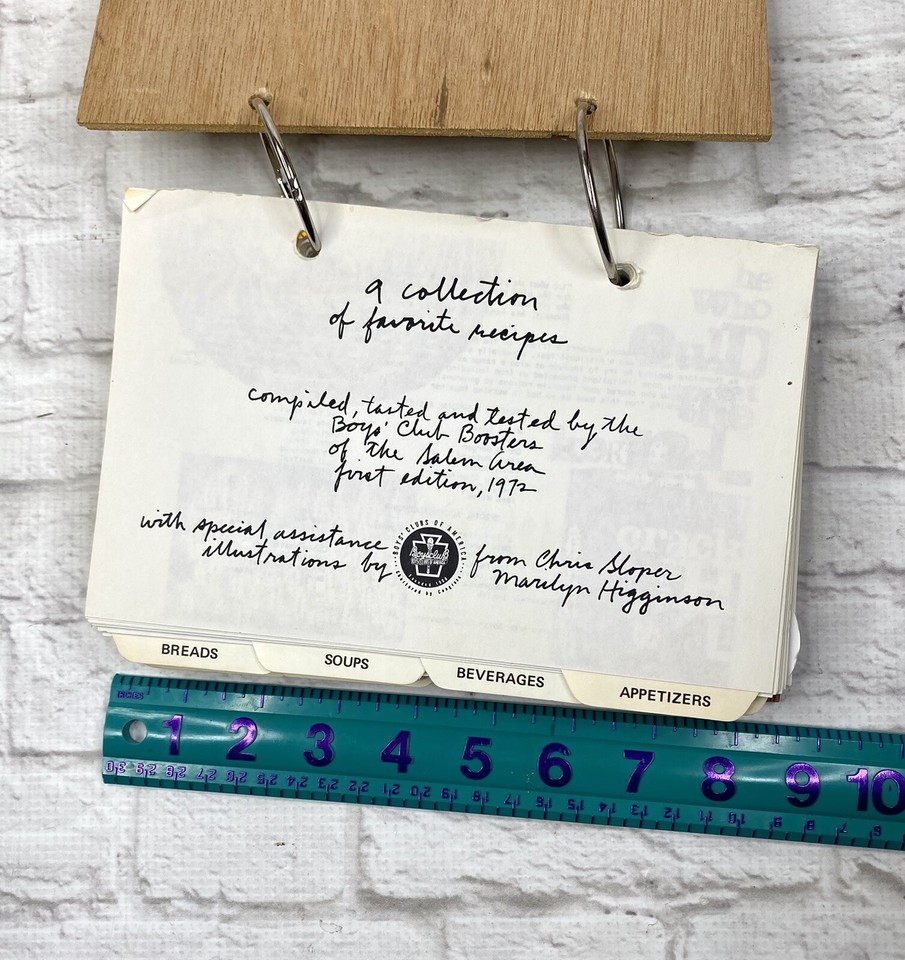 a collection
of favorite recipes
compiled, tasted and tested by the
Boys' Club Boosters
of the Salem Area
first edition, 1972
with special assistance from Chris Sloper
illustrations by Marilyn Higginson
BOYS' CLUBS OF AMERICA
BREADS SOUPS BEVERAGES APPETIZERS
1 2 3 4 5 6 7 8 9 10
30 29 28 27 26 25 24 23 22 21 20 19 18 17 16 15 14 13 12 11 10 9 8 7 6